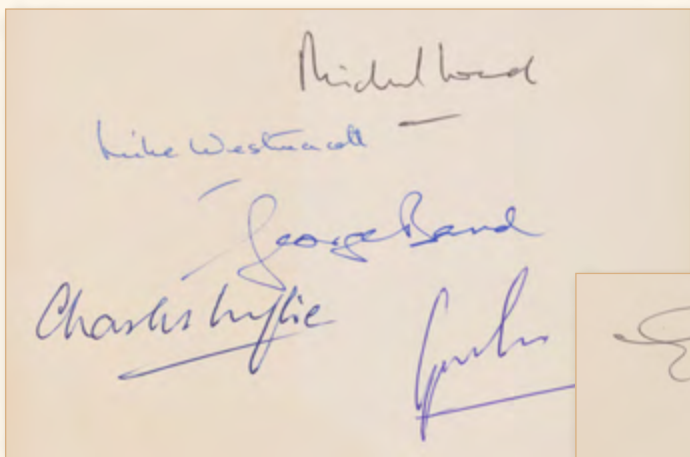 Michael Ward
Mike Westmacott
George Band
Charles Wylie